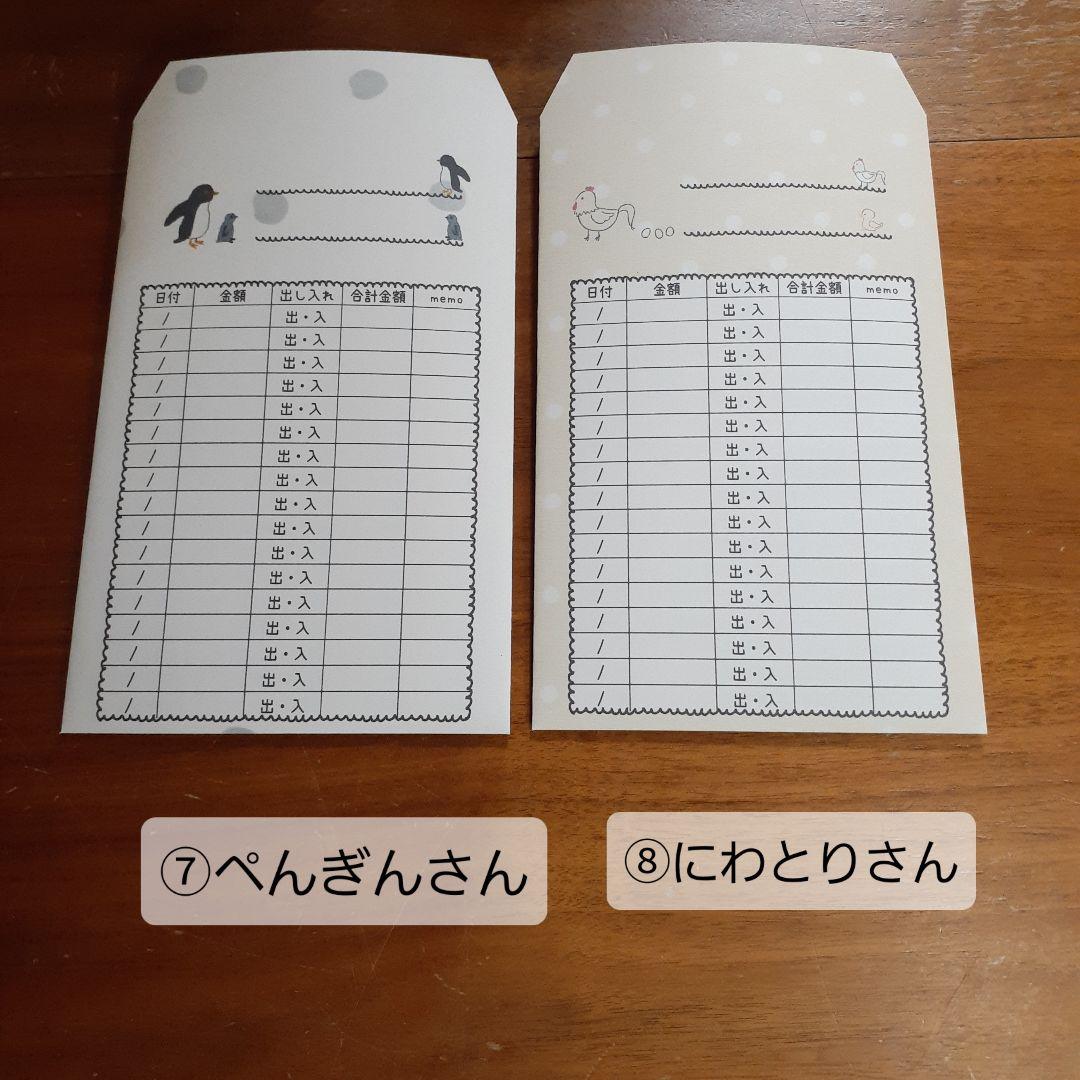 日付 金額 出し入れ 合計金額 memo
/ 出・入
/ 出・入
/ 出・入
/ 出・入
/ 出・入
/ 出・入
/ 出・入
/ 出・入
/ 出・入
/ 出・入
/ 出・入
/ 出・入
/ 出・入
/ 出・入
/ 出・入
/ 出・入
/ 出・入
日付 金額 出し入れ 合計金額 memo
/ 出・入
/ 出・入
/ 出・入
/ 出・入
/ 出・入
/ 出・入
/ 出・入
/ 出・入
/ 出・入
/ 出・入
/ 出・入
/ 出・入
/ 出・入
/ 出・入
/ 出・入
/ 出・入
/ 出・入
⑦ぺんぎんさん
⑧にわとりさん